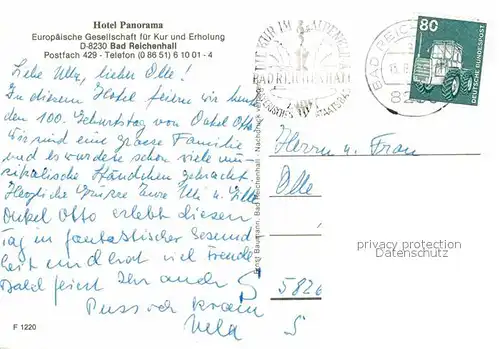 Hotel Panorama
Europäische Gesellschaft für Kur und Erholung
D-8230 Bad Reichenhall
Postfach 429 - Telefon (0 86 51) 6 10 01 - 4
Liebe Ulla, lieber Olle!
In diesem Hotel feiern wir heute
den 100. Geburtstag von Onkel Otto
Wir sind eine grosse Familie
und es wurden schon viele mu-
sikalische Ständchen gebracht.
Herzliche Grüsse Eure Uli u.
Onkel Otto erlebt diesen
Tag in fantastischer Gesund
heit und hat viel Freude
Bald feiert Ihr auch
Puss och kram
F 1220
Ernst Baumann, Bad Reichenhall - Nachdruck
ZUR KUR IM ALPENKLIMA
BAD REICHENHALL
BAYERISCHES STAATSBAD
BAD REICHE
80
DEUTSCHE BUNDESPOST
Herrn u. Frau
Olle
privacy protection
Datenschutz
5826
S